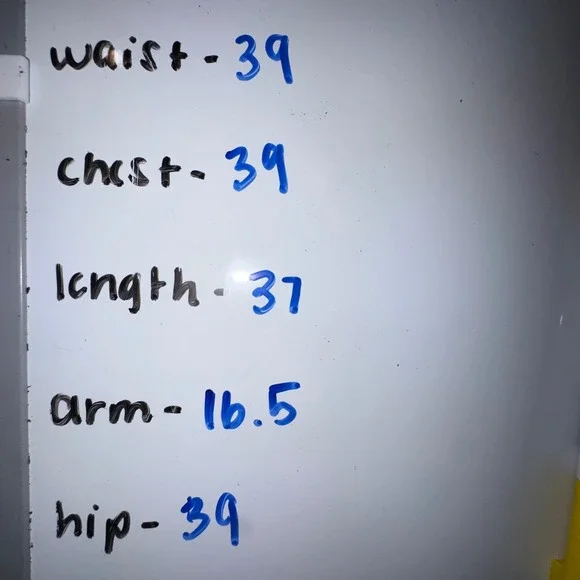 waist - 39
chest - 39
length - 37
arm - 16.5
hip - 39